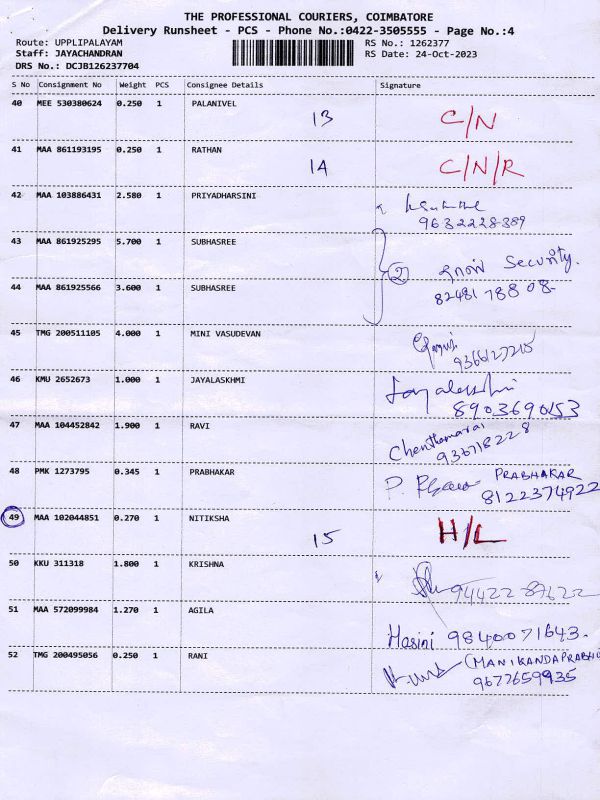 THE PROFESSIONAL COURIERS, COIMBATORE
Delivery Runsheet - PCS - Phone No.:0422-3505555 - Page No.:4
Route: UPPLIPALAYAM RS No.: 1262377
Staff: JAYACHANDRAN RS Date: 24-Oct-2023
DRS No.: DCJB126237704
S No Consignment No Weight PCS Consignee Details Signature
40 MEE 530380624 0.250 1 PALANIVEL 13 C/N
41 MAA 861193195 0.250 1 RATHAN 14 C/N/R
42 MAA 103886431 2.580 1 PRIYADHARSINI
9632228389
43 MAA 861925295 5.700 1 SUBHASREE
② Security.
44 MAA 861925566 3.600 1 SUBHASREE 82481 78808
45 TMG 200511105 4.000 1 MINI VASUDEVAN
9366127215
46 KMU 2652673 1.000 1 JAYALASKHMI Jayalakshmi
8903690153
47 MAA 104452842 1.900 1 RAVI Chenthamarai
936718228
48 PMK 1273795 0.345 1 PRABHAKAR PRABHAKAR
8122374922
49 MAA 102044851 0.270 1 NITIKSHA 15 H/L
50 KKU 311318 1.800 1 KRISHNA 94422 87622
51 MAA 572099984 1.270 1 AGILA
Hasini 9840071643.
52 TMG 200495056 0.250 1 RANI (MANIKANDAPRABHU
9677659935